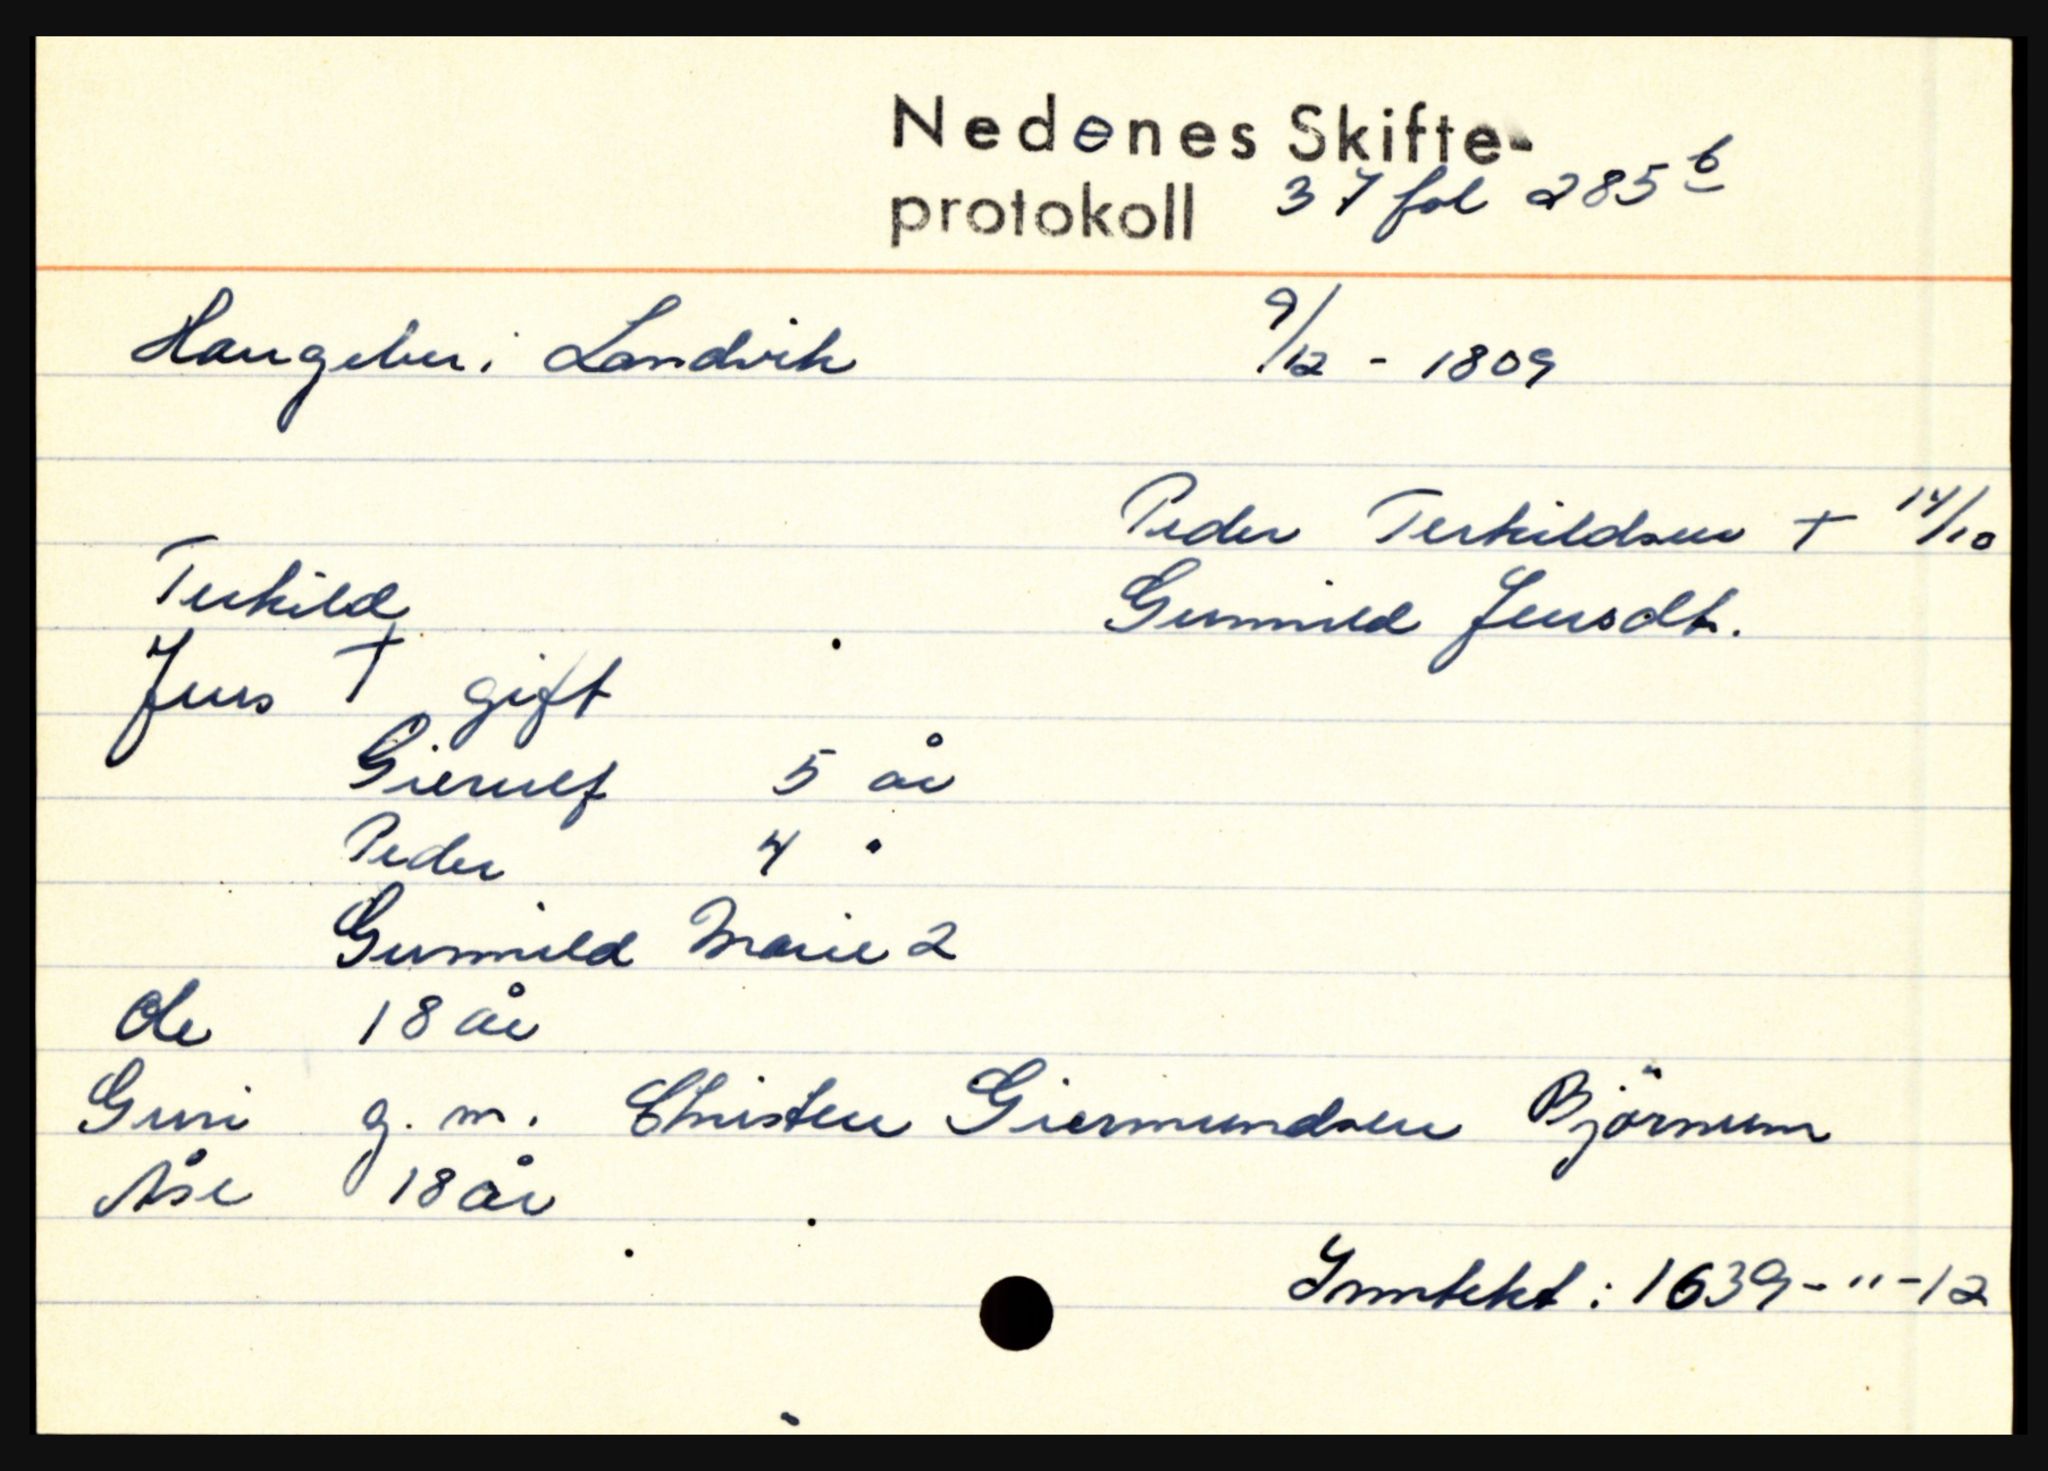 Nedenes Skifte-
protokoll 37 fol 285 b
Haugeber i Landvik 9/12 - 1809
Peder Terkildsen + 14/10
Terkild
Gunnild Jensdt.
Jens + gift
Gierulf 5 år
Peder 4 "
Gunnild Marie 2
Ole 18 år
Guri g. m. Christen Giermundsen Bjørnum
Åse 18 år
Inntekt: 1639-"-12